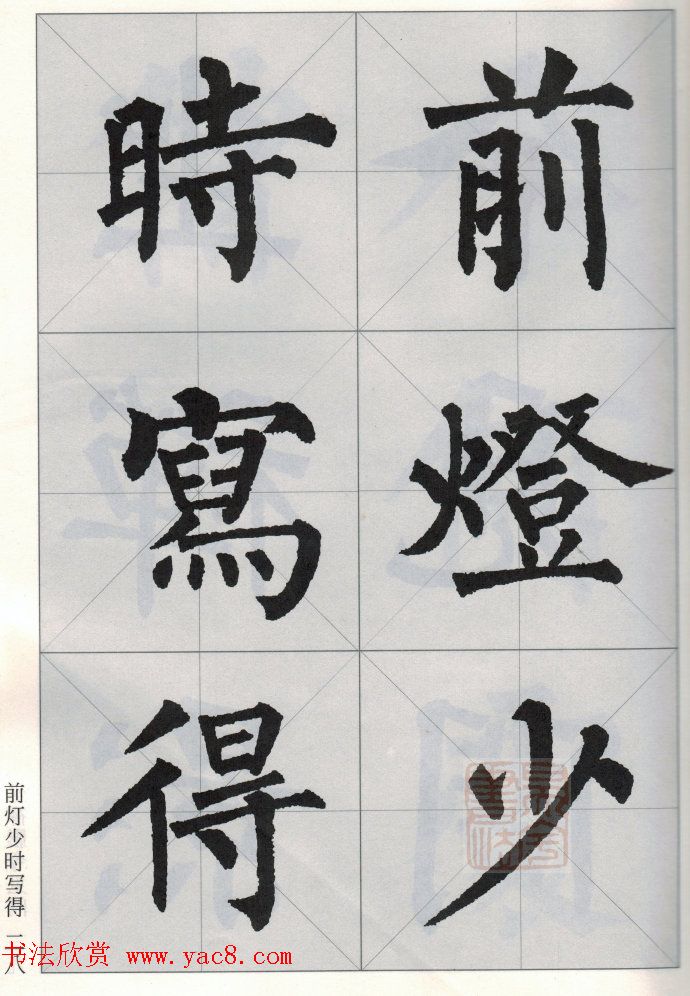 前燈少
時寫得
前灯少时写得 二八
书法欣赏 www.yac8.com